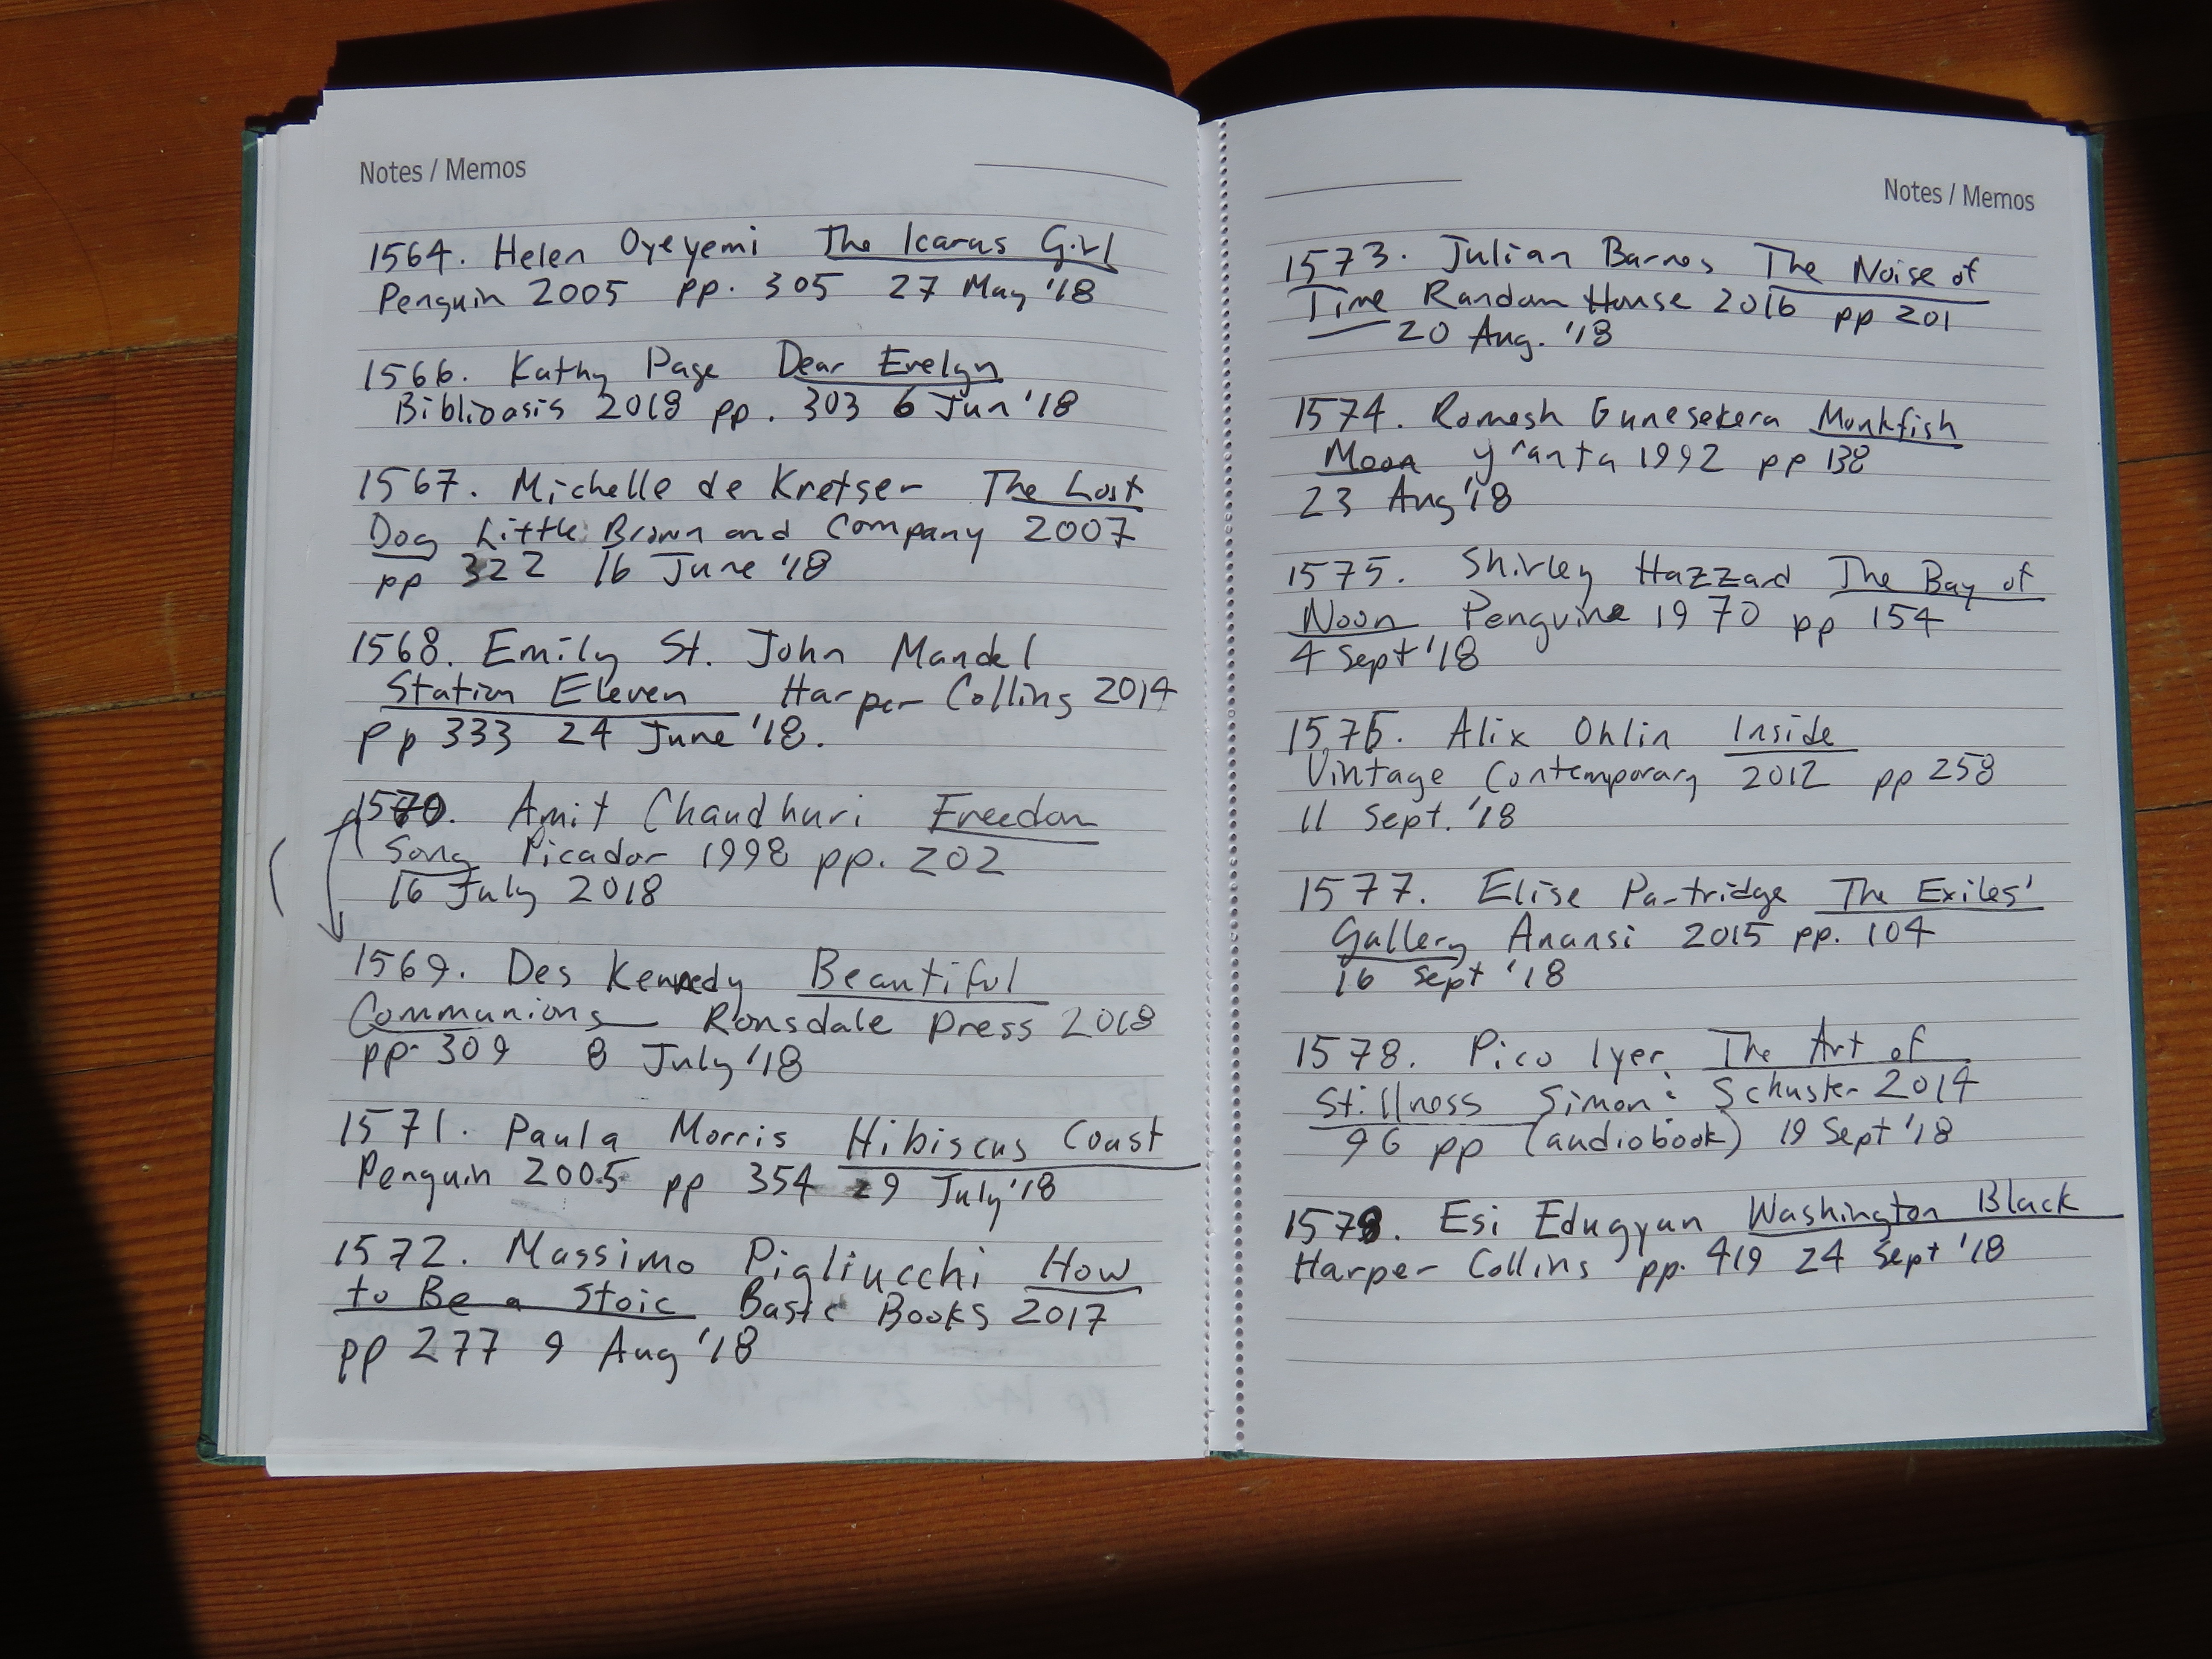 Notes / Memos
1564. Helen Oyeyemi The Icarus Girl
Penguin 2005 pp. 305 27 May '18
1566. Kathy Page Dear Evelyn
Biblioasis 2018 pp. 303 6 Jun '18
1567. Michelle de Kretser The Lost
Dog Little Brown and Company 2007
pp 322 16 June '18
1568. Emily St. John Mandel
Station Eleven Harper Collins 2014
pp 333 24 June '18.
1570. Amit Chaudhuri Freedom
Song Picador 1998 pp. 202
16 July 2018
1569. Des Kennedy Beautiful
Communions Ronsdale Press 2018
pp. 309 8 July '18
1571. Paula Morris Hibiscus Coast
Penguin 2005 pp 354 29 July '18
1572. Massimo Pigliucchi How
to Be a Stoic Basic Books 2017
pp 277 9 Aug '18
Notes / Memos
1573. Julian Barnes The Noise of
Time Random House 2016 pp 201
20 Aug. '18
1574. Romesh Gunesekera Monkfish
Moon Granta 1992 pp 138
23 Aug '18
1575. Shirley Hazzard The Bay of
Noon Penguine 1970 pp 154
4 Sept '18
1576. Alix Ohlin Inside
Vintage Contemporary 2012 pp 258
11 Sept. '18
1577. Elise Partridge The Exiles'
Gallery Anansi 2015 pp. 104
16 Sept '18
1578. Pico Iyer. The Art of
Stillness Simon : Schuster 2014
96 pp (audiobook) 19 Sept '18
1579. Esi Edugyan Washington Black
Harper Collins pp. 419 24 Sept '18